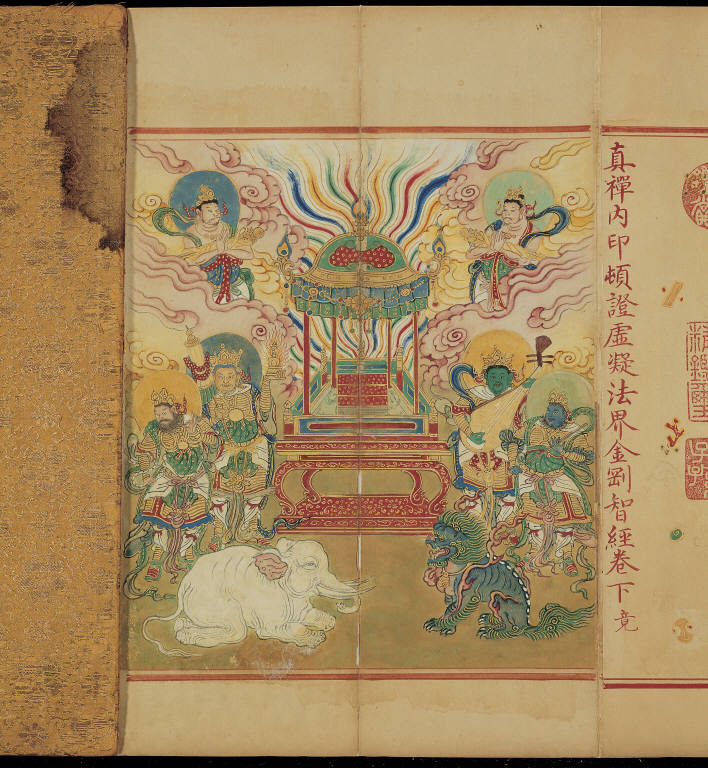 真禪內印頓證虛凝法界金剛智經卷下竟